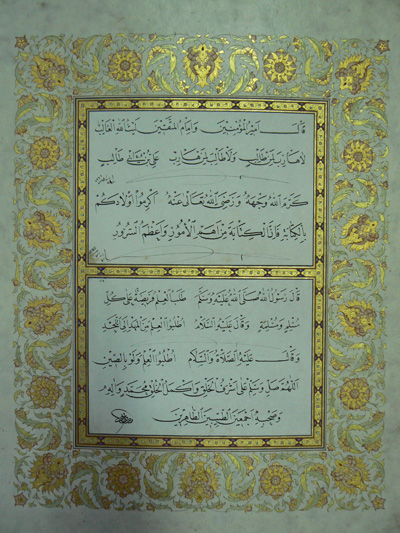 قال امير المؤمنين وامام المتقين ليث الله الغالب
علي بن ابي طالب
كرم الله وجهه ورضي الله تعالى عنه اكرموا اولادكم
بالكتابة فان الكتابة من اهم الامور واعظم السرور
قال رسول الله صلى الله عليه وسلم طلب العلم فريضة على كل
مسلم ومسلمة وقال عليه السلام اطلبوا العلم من المهد الى اللحد
وقال عليه الصلاة والسلام اطلبوا العلم ولو بالصين
اللهم صل وسلم على اشرف الخلق واكمل الخلق محمد وآله
وصحبه اجمعين الطيبين الطاهرين